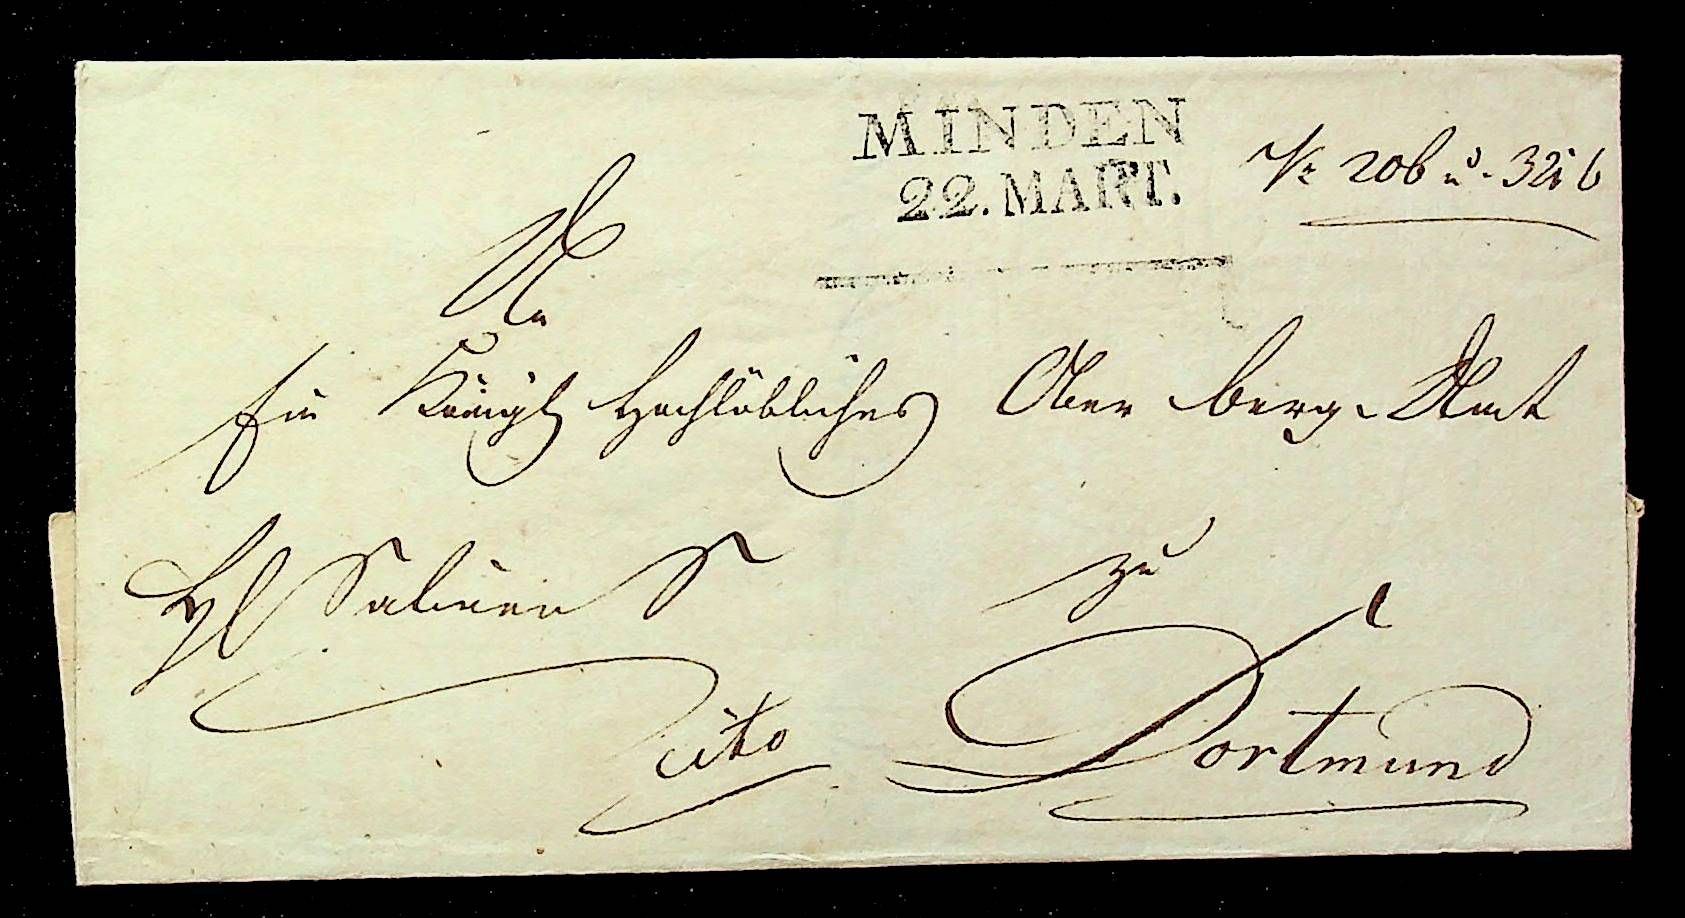 MINDEN
22. MART.
206 u.
An
Ein Königl Hochlöbliches Ober Berg-Amt
Salinen S
zu
cito
Dortmund